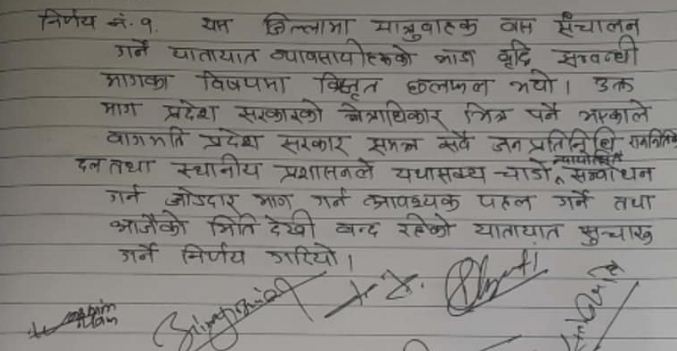 निर्णय नं. १. यस जिल्लामा यात्रुवाहक वस संचालन
गर्ने यातायात व्यावसायीहरूको भाडा वृद्धि सम्वन्धी
मागका विषयमा विस्तृत छलफल भयो। उक्त
माग प्रदेश सरकारको क्षेत्राधिकार भित्र पर्ने भएकाले
वागमति प्रदेश सरकार समक्ष सवै जनप्रतिनिधि राजनितिक
दल तथा स्थानीय प्रशासनले यथासक्य चाडो न्यायोचित सम्वोधन
गर्न जोडदार माग गर्न आवश्यक पहल गर्ने तथा
आजैको मिति देखी वन्द रहेको यातायात सुचारु
गर्ने निर्णय गरियो।